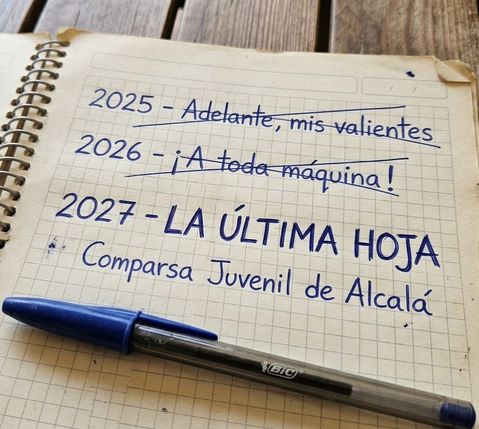 2025 - Adelante, mis valientes
2026 - ¡A toda máquina!
2027 - LA ÚLTIMA HOJA
Comparsa Juvenil de Alcalá
BIC